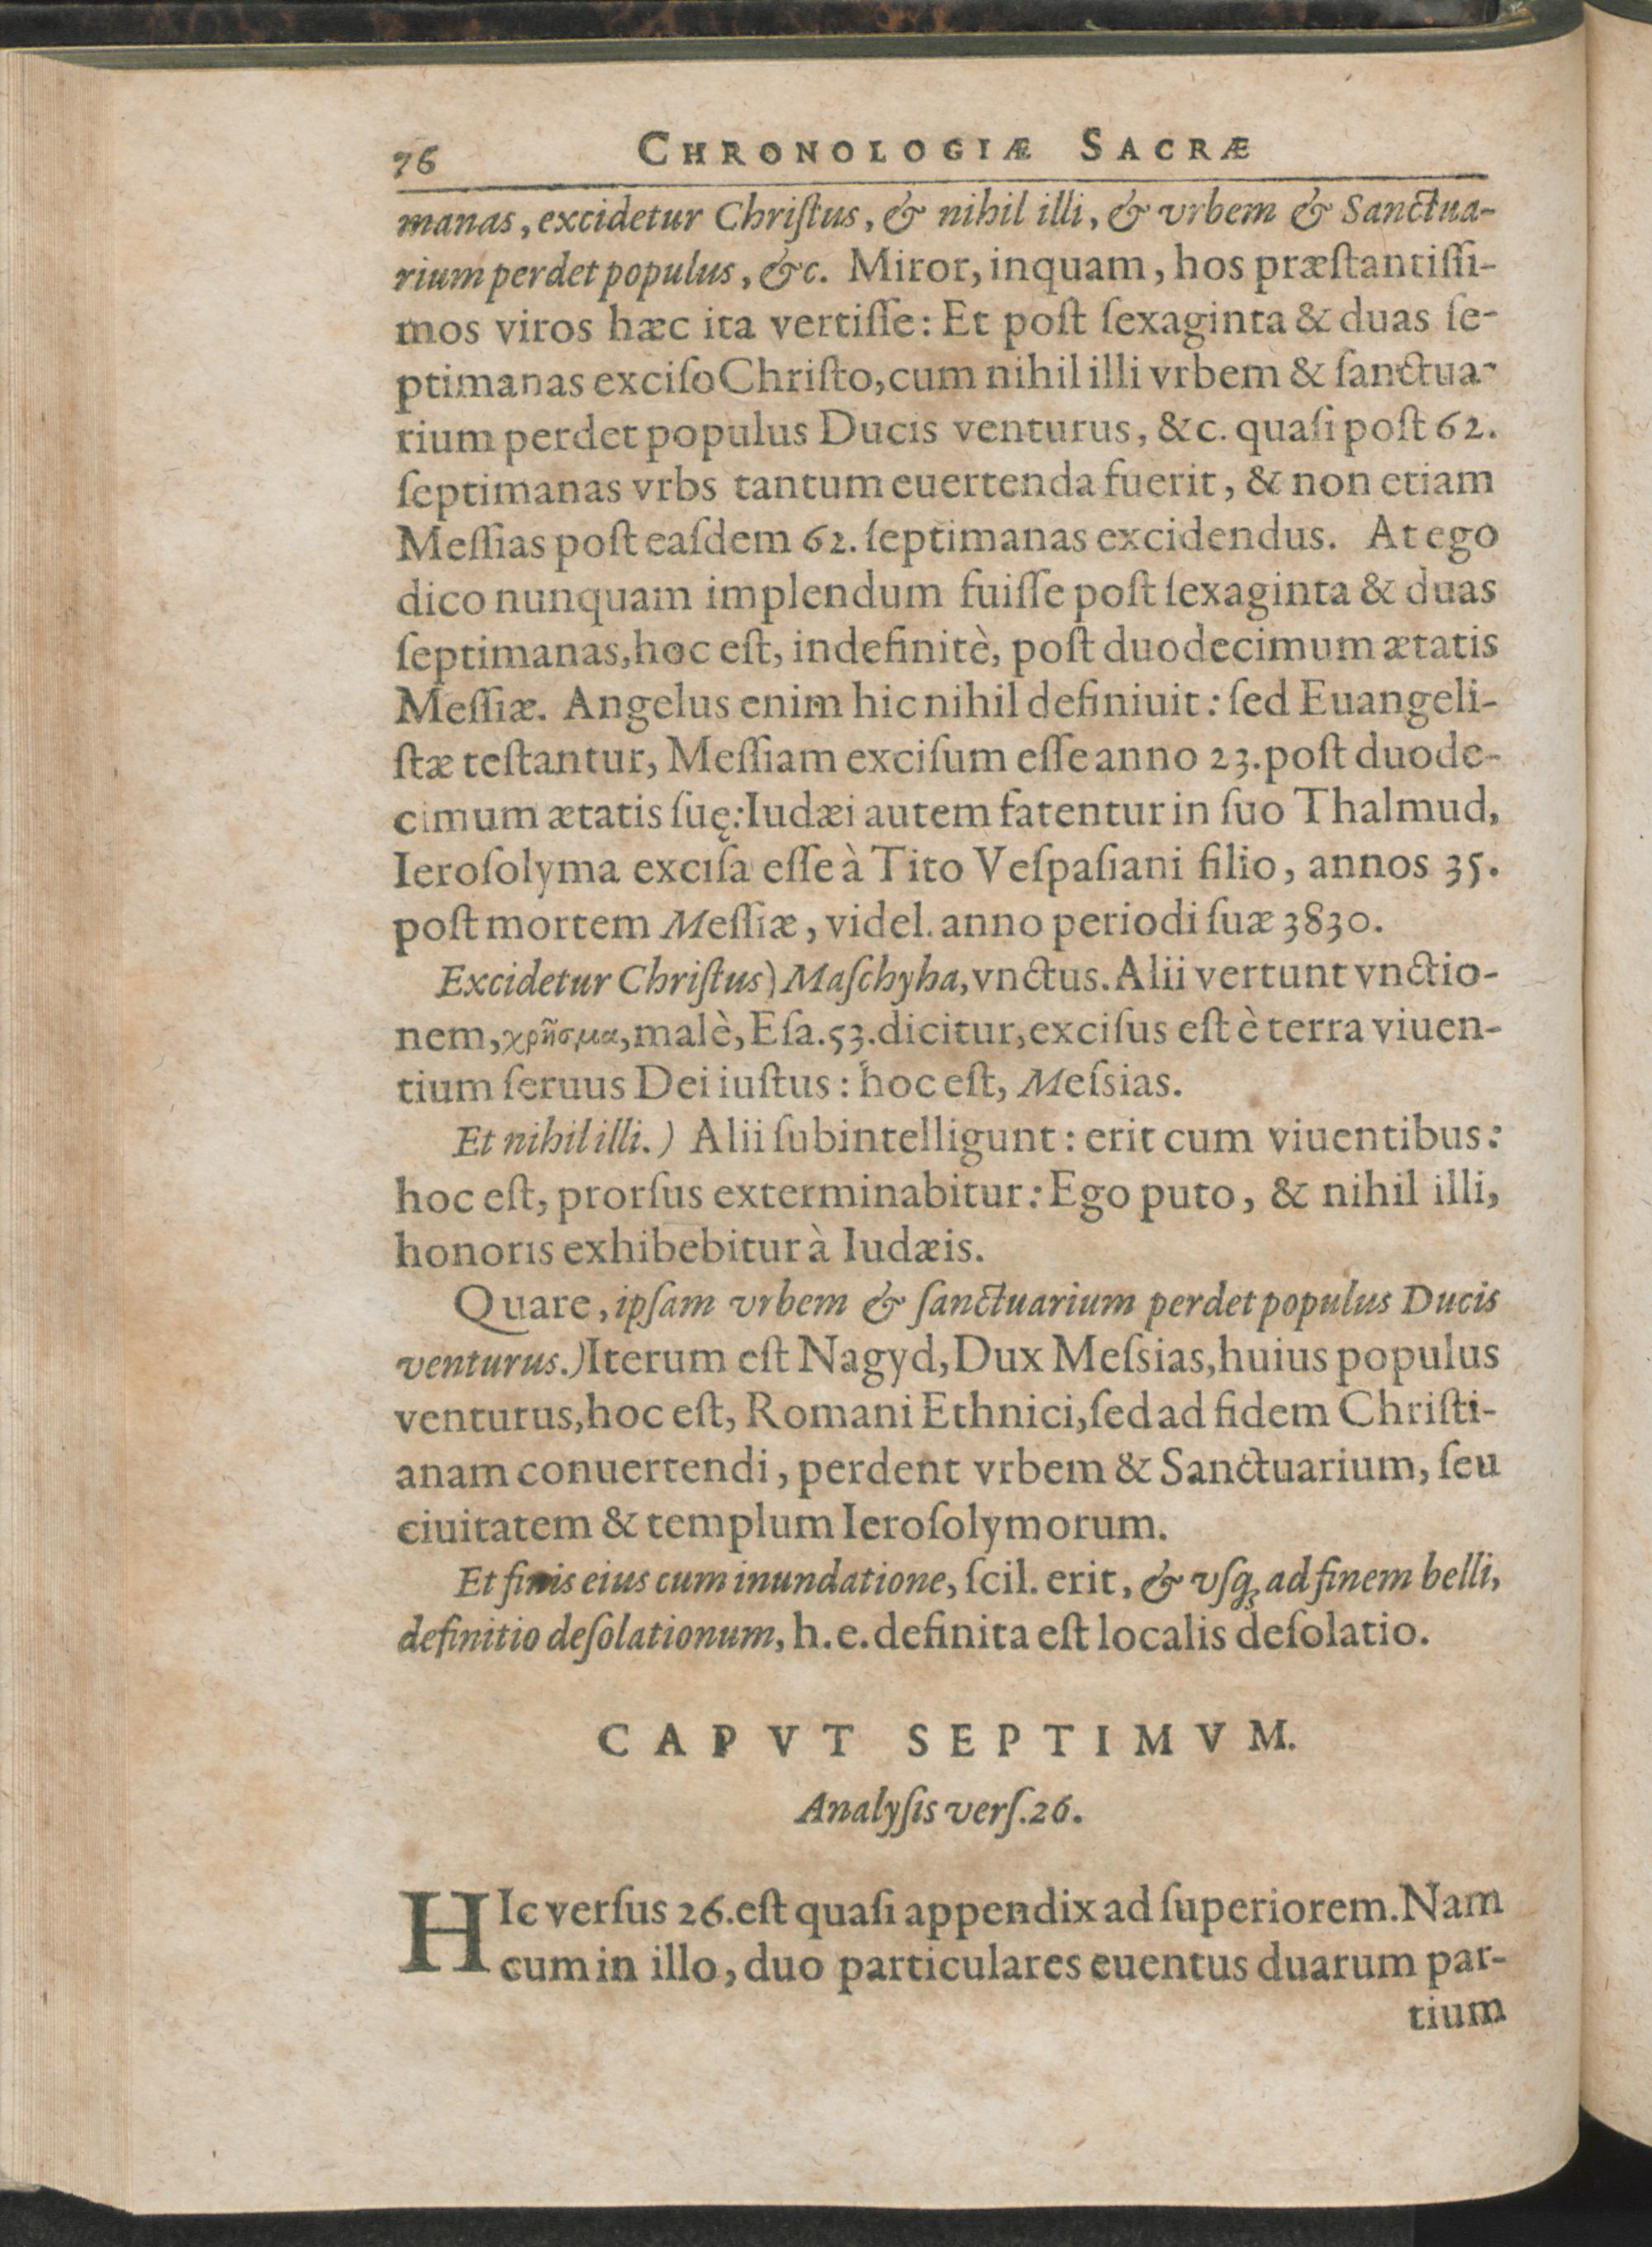 76 CHRONOLOGIÆ SACRÆ
manas, excidetur Chriſtus, & nihil illi, & vrbem & Sanctua-
rium perdet populus, &c. Miror, inquam, hos præſtantiſſi-
mos viros hæc ita vertiſſe: Et poſt ſexaginta & duas ſe-
ptimanas exciſo Chriſto, cum nihil illi vrbem & ſanctua-
rium perdet populus Ducis venturus, &c. quaſi poſt 62.
ſeptimanas vrbs tantum euertenda fuerit, & non etiam
Meſſias poſt eaſdem 62. ſeptimanas excidendus. At ego
dico nunquam implendum fuiſſe poſt ſexaginta & duas
ſeptimanas, hoc eſt, indefinitè, poſt duodecimum ætatis
Meſſiæ. Angelus enim hic nihil definiuit: ſed Euangeli-
ſtæ teſtantur, Meſſiam exciſum eſſe anno 23. poſt duode-
cimum ætatis ſuę: Iudæi autem fatentur in ſuo Thalmud,
Ieroſolyma exciſa eſſe à Tito Veſpaſiani filio, annos 35.
poſt mortem Meſſiæ, videl. anno periodi ſuæ 3830.
Excidetur Chriſtus) Maſchyha, vnctus. Alii vertunt vnctio-
nem, χρῆσμα, malè, Eſa. 53. dicitur, exciſus eſt è terra viuen-
tium ſeruus Dei iuſtus: hoc eſt, Meſsias.
Et nihil illi.) Alii ſubintelligunt: erit cum viuentibus:
hoc eſt, prorſus exterminabitur: Ego puto, & nihil illi,
honoris exhibebitur à Iudæis.
Quare, ipſam vrbem & ſanctuarium perdet populus Ducis
venturus.) Iterum eſt Nagyd, Dux Meſsias, huius populus
venturus, hoc eſt, Romani Ethnici, ſed ad fidem Chriſti-
anam conuertendi, perdent vrbem & Sanctuarium, ſeu
ciuitatem & templum Ieroſolymorum.
Et finis eius cum inundatione, ſcil. erit, & vſq; ad finem belli,
definitio deſolationum, h.e. definita eſt localis deſolatio.
CAPVT SEPTIMVM.
Analyſis verſ. 26.
HIc verſus 26. eſt quaſi appendix ad ſuperiorem. Nam
cum in illo, duo particulares euentus duarum par-
tium